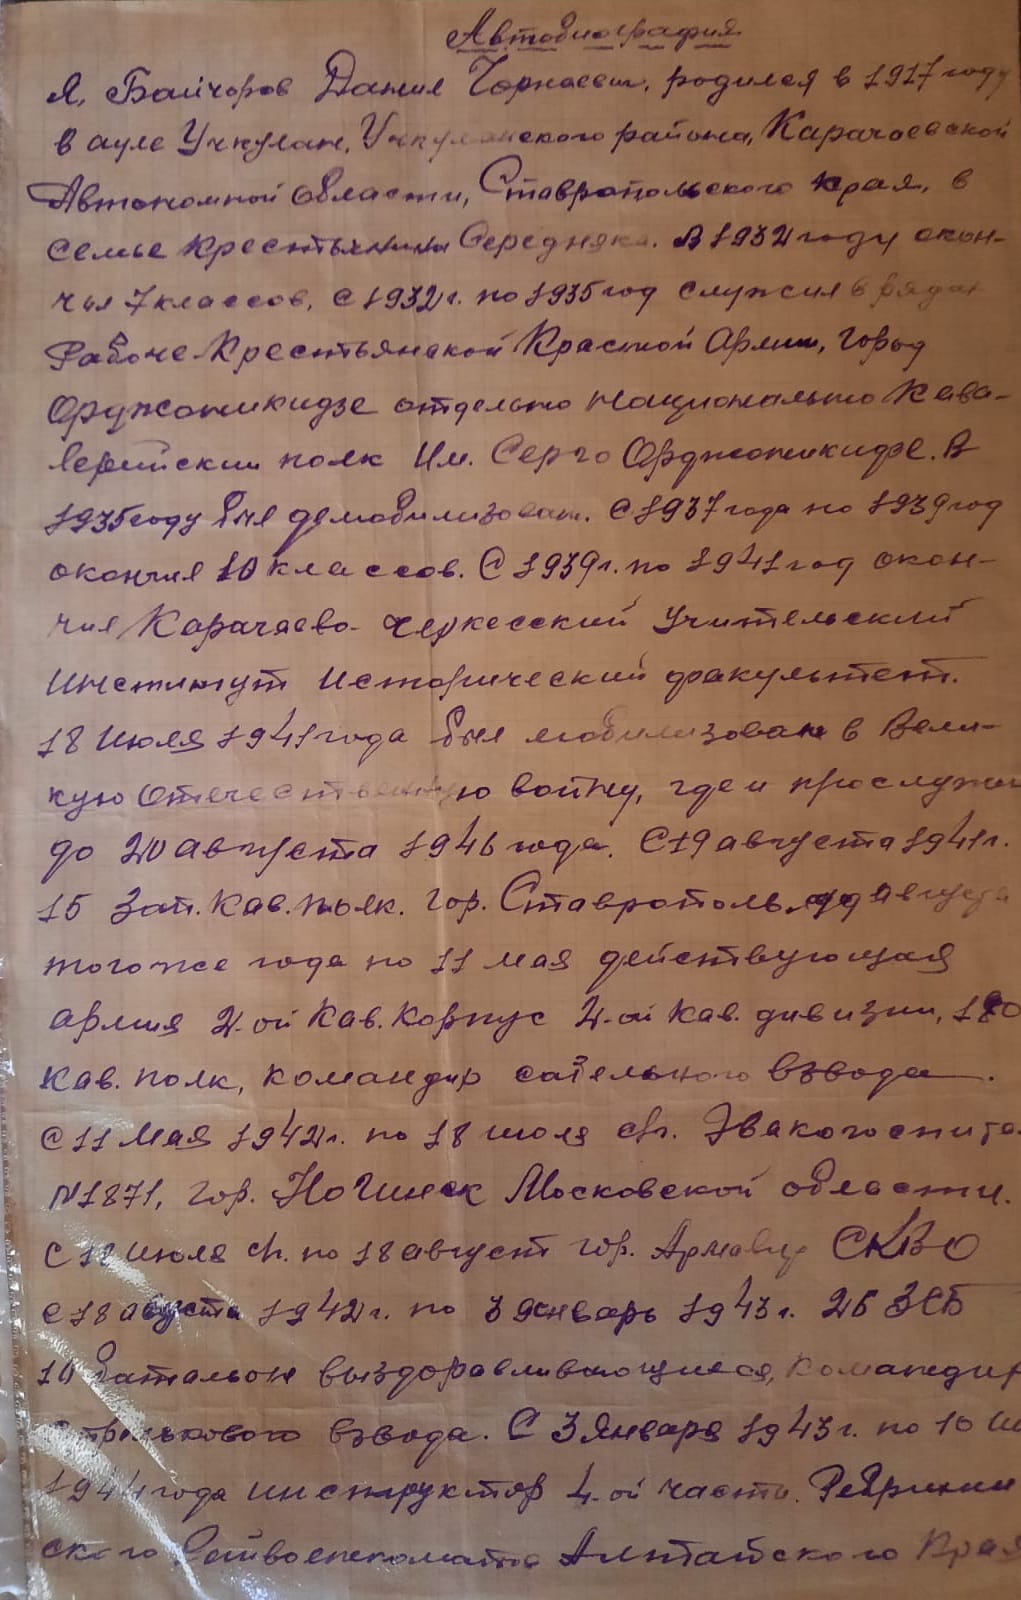 Автобиография
Я, Байчоров Данил Чорнаевич, родился в 1917 году
в ауле Учкулан, Учкуланского района, Карачаевской
Автономной области, Ставропольского края, в
семье крестьянина Середняка. В 1932 году окон-
чил 7 классов, С 1932 г. по 1935 год служил в рядах
Рабоче Крестьянской Красной Армии, город
Орджоникидзе отдельно национально Кава-
лерийский полк Им. Серго Орджоникидзе. В
1935 году был демобилизован. С 1937 года по 1939 год
окончил 10 классов. С 1939 г. по 1941 год окон-
чил Карачаево-Черкесский Учительский
Институт Исторический факультет.
18 Июля 1941 года был мобилизован в Вели-
кую Отечественную войну, где и прослужил
до 20 августа 1946 года. С 19 августа 1941 г.
15 Зап. Кав. полк. гор. Ставрополь августа
того же года по 11 мая действующая
армия 2-ой Кав. Корпус 4-ой Кав. дивизии,
Кав. полк, командир взвода.
С 11 Мая 1942 г. по 18 июля с/г. Эвакогоспита
N 1871, гор. Ногинск Московской области.
С 18 июля с/г. по 18 август гор. Армавир СКВО
С 18 августа 1942 г. по 3 январь 1943 г. 26 ЗСБ
10 батальон выздоравливающиеся, командир
Стрелькового взвода. С 3 Января 1943 г. по 10
1944 года инструктор 4-ой части. Ребрихин
ского Алтайского Края